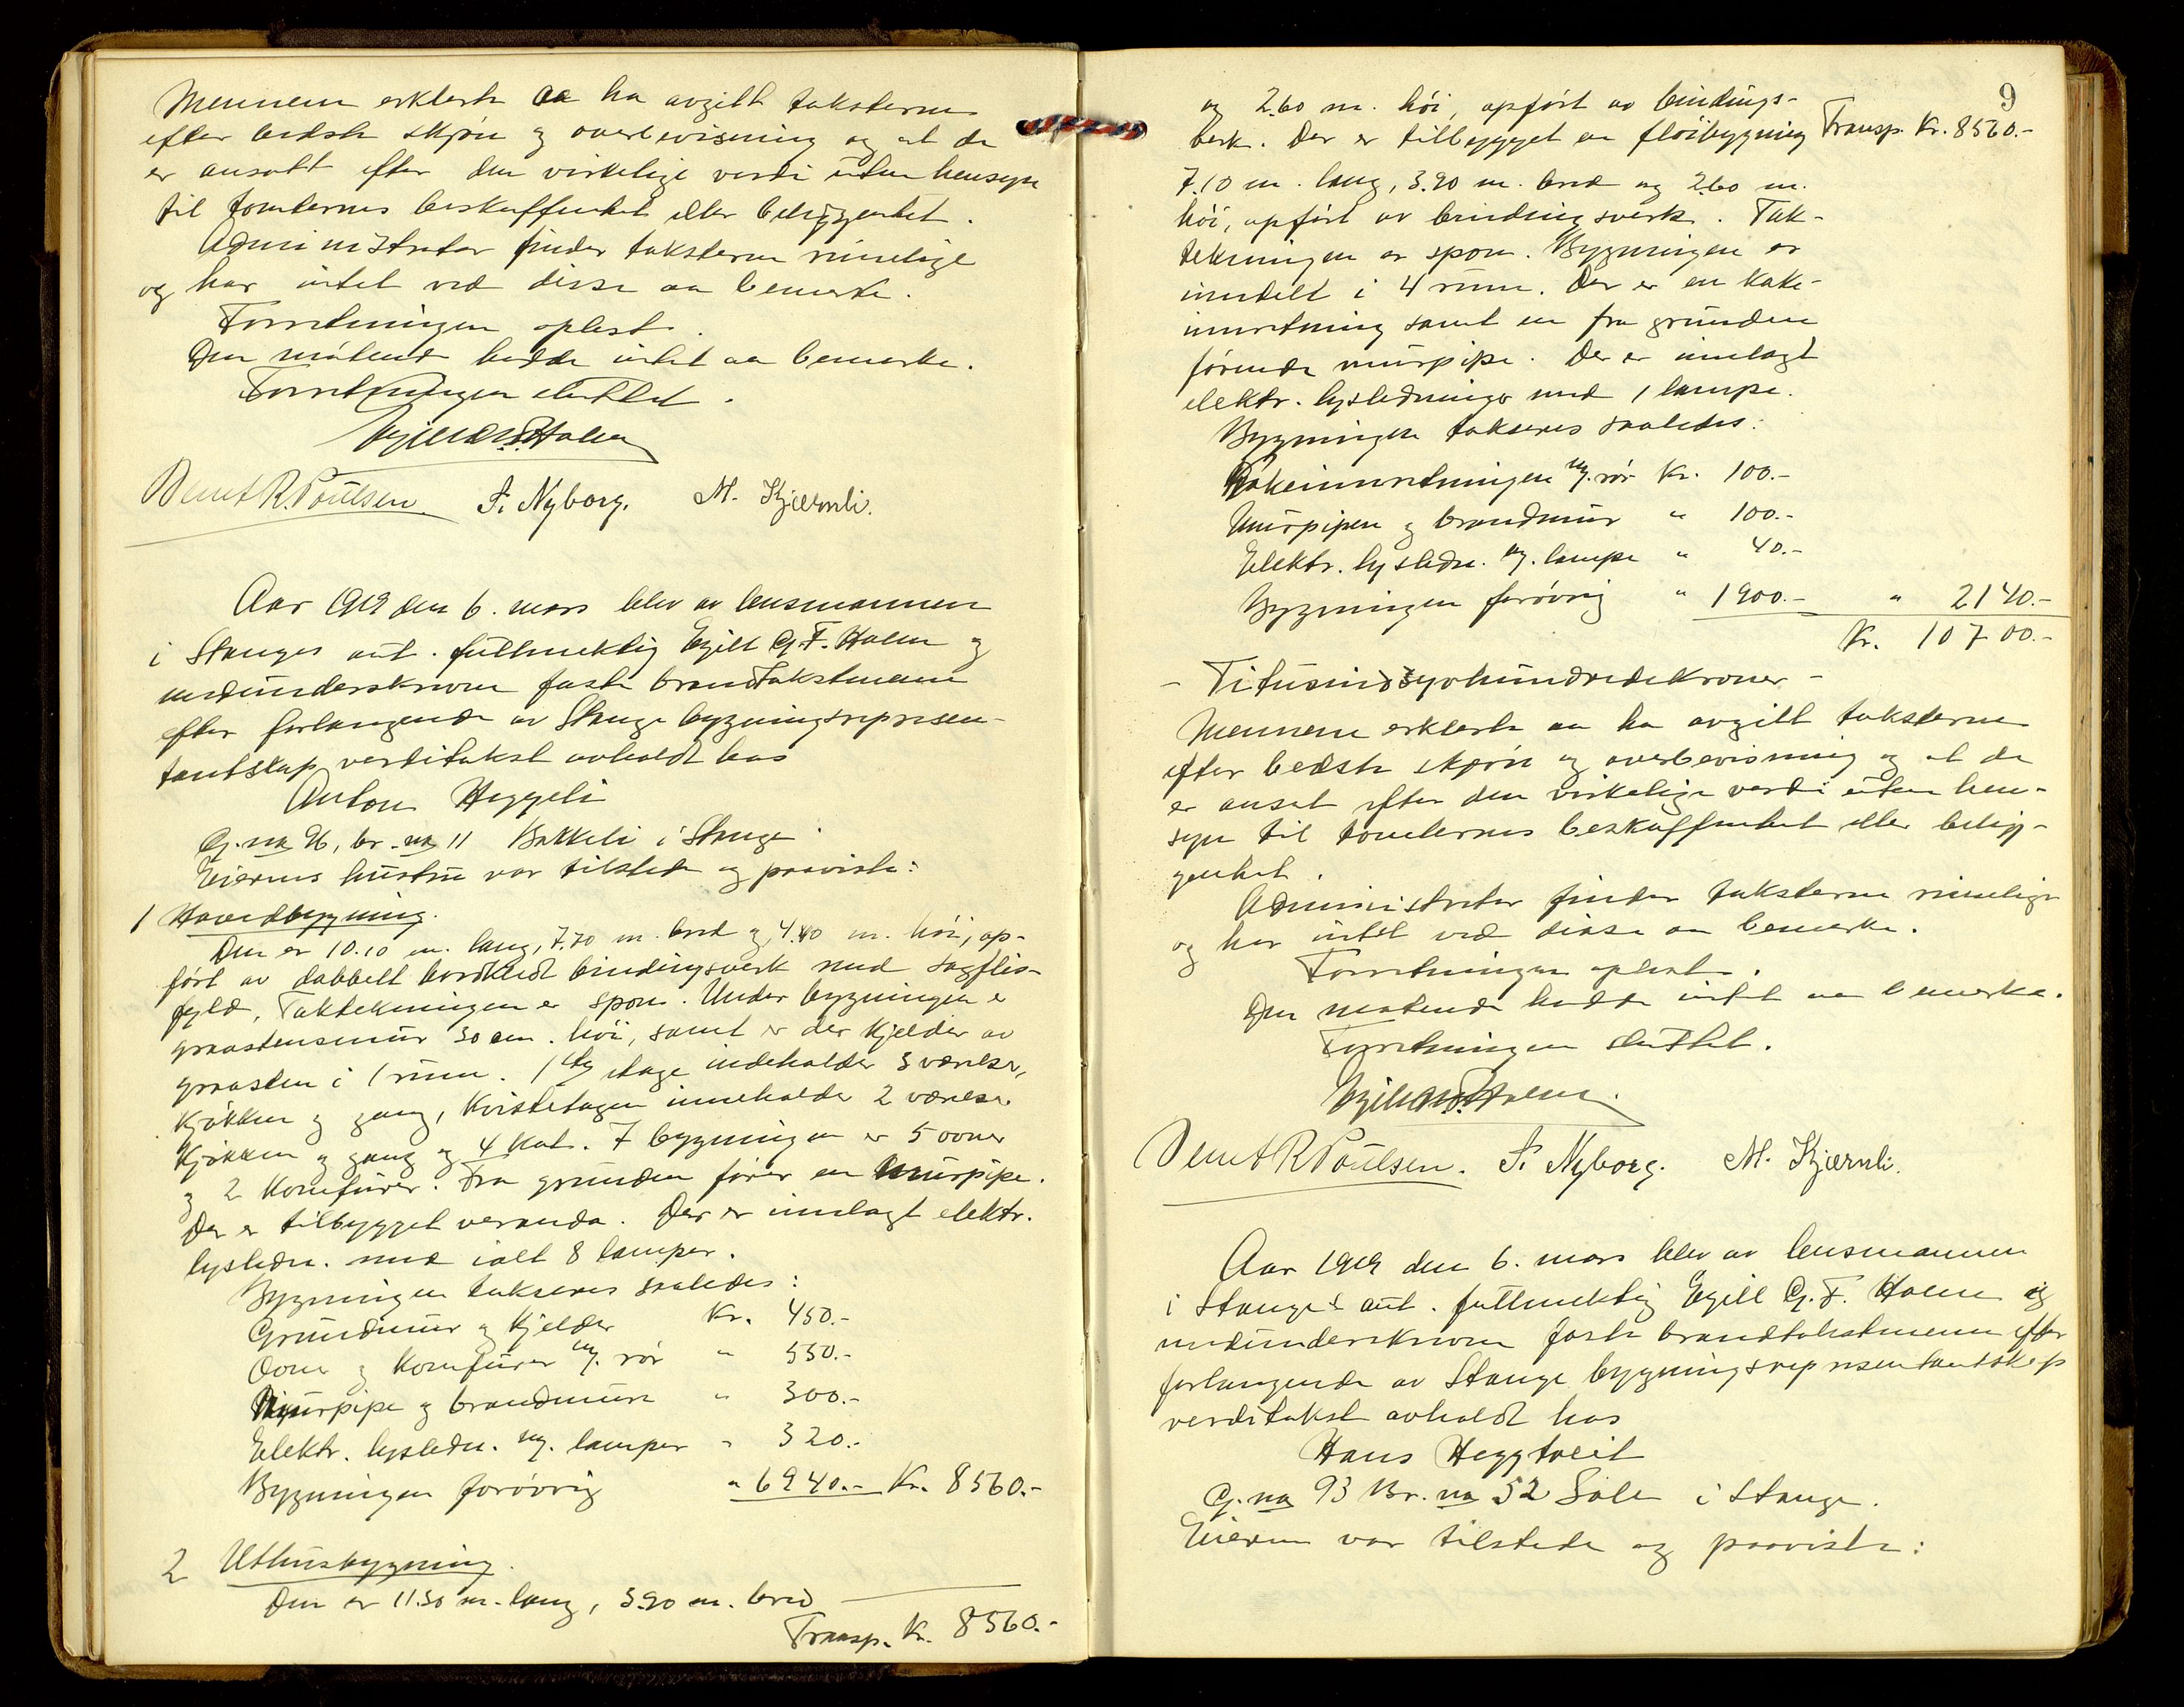 Mennene erklerte aa ha avgitt taksterne
efter bedste skjøn og overbevisning og at de
er ansatt efter den virkelige verdi uten hensyn
til tomternes beskaffenhet eller beliggenhet.
Administrator finder taksterne rimelige
og har intet ved disse aa bemerke.
Forretningen oplest.
Den møtende hadde intet aa bemerke.
Forretningen sluttet.
Egill G.F. Holm
Bernt R. Poulsen. F. Nyborg. M. Kjærnli.
Aar 1919 den 6. mars blev av lensmannen
i Stanges aut. fullmektig Egill G.F. Holm og
medunderskrevne faste brandtakstmenn
efter forlangende av Stange bygningsrepresen-
tantskap verditakst avholdt hos
Anton Heggeli
G. no 96, br. no 11 Bakkeli i Stange.
Eierens hustru var tilstede og paaviste:
1 Hovedbygning.
Den er 10.10 m. lang, 7.70 m. bred og 4.40 m. høi, op-
ført av dobbelt bordkledt bindingsverk med sagflis-
fyld, Taktekningen er spon. Under bygningen er
graastensmur 30 cm. høi, samt er der kjelder av
graasten i 1 rum. 1ste etage indeholder 3 værelser,
kjøkken og gang, Kvistetagen inneholder 2 værelser
kjøkken og gang og 4 kot. I bygningen er 5 ovner
og 2 komfurer. Fra grunden fører en murpipe.
Der er tilbygget veranda. Der er innlagt elektr.
lysledn. med ialt 8 lamper.
Bygningen takseres saaledes:
Grundmur og kjelder Kr. 450.-
Ovne og komfurer m/. rør " 550.-
Murpipe og brandmure " 300.-
Elektr. lysledn. m/. lamper " 320.-
Bygningen forøvrig " 6940.- Kr. 8560.-
2 Uthusbygning.
Den er 11.50 m. lang, 3.90 m. bred
Transp. Kr. 8560.-
9
og 2.60 m. høi, opført av bindings-
verk. Der er tilbygget en fløibygning Transp. Kr. 8560.-
7.10 m. lang, 3.90 m. bred og 2.60 m.
høi, opført av bindingsverk. Tak-
tekningen er spon. Bygningen er
inndelt i 4 rum. Der er en koke-
innretning samt en fra grunden
førende murpipe. Der er innlagt
elektr. lysledninger med 1 lampe.
Bygningen takseres saaledes:
Kokeinnretningen m/. rør Kr. 100.-
Murpipen og brandmur " 100.-
Elektr. lysledn. m/. lampe " 40.-
Bygningen forøvrig " 1900.- " 2140.-
Kr. 10700.-
- Titusindsyvhundredekroner -
Mennene erklerte aa ha avgitt taksterne
efter bedste skjøn og overbevisning og at de
er ansat efter den virkelige verdi uten hen-
syn til tomternes beskaffenhet eller belig-
genhet.
Administrator finder taksterne rimelige
og har intet ved disse aa bemerke.
Forretningen oplest.
Den møtende hadde intet aa bemerke.
Forretningen sluttet.
Egill G.F. Holm.
Bernt R Poulsen. F. Nyborg. M. Kjærnli.
Aar 1919 den 6. mars blev av lensmannen
i Stanges aut. fullmektig Egill G.F. Holm og
medunderskrevne faste brandtakstmenn efter
forlangende av Stange bygningsrepresentantskap
verditakst avholdt hos
Hans Heggtveit
G. no 93 Br. no 52 Sole i Stange.
Eieren var tilstede og paaviste: